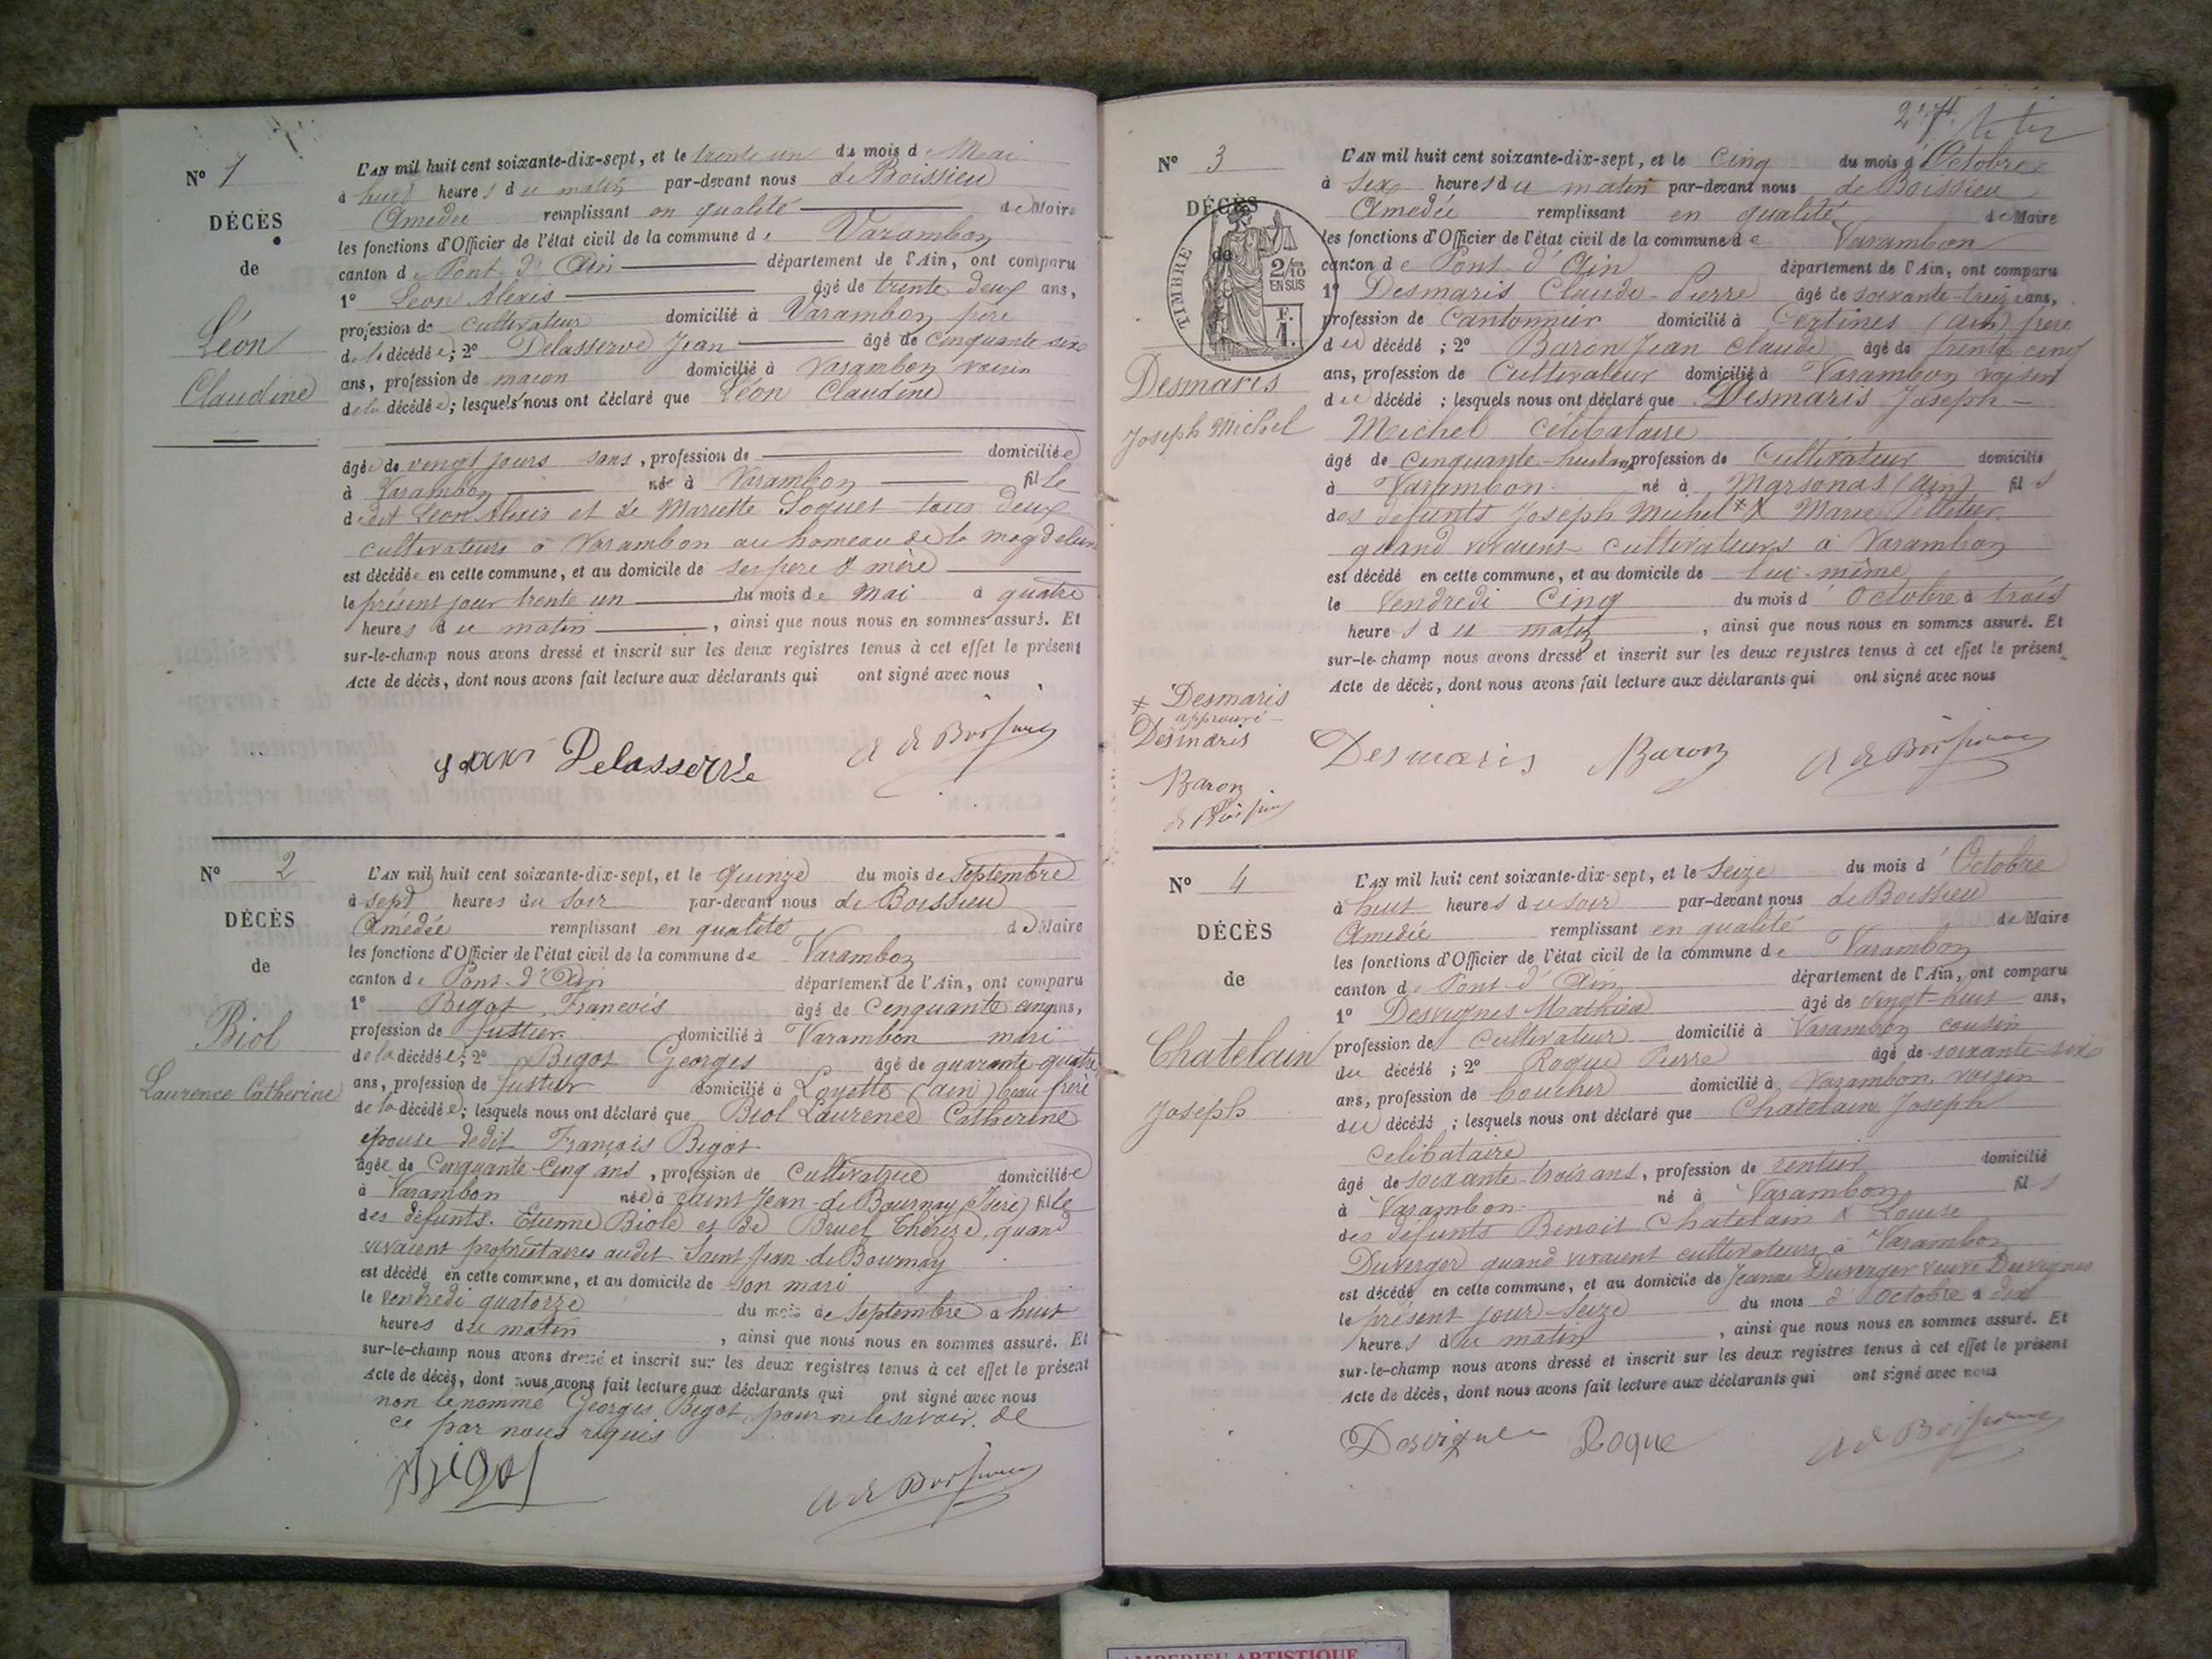 N° 1
DÉCÈS
de
Léon
Claudine
L'AN mil huit cent soixante-dix-sept, et le trente un du mois de Mai
à huit heures du matin par-devant nous de Boissieu
Amedée remplissant en qualité de Maire
les fonctions d'Officier de l'état civil de la commune de Varambon
canton de Pont d'Ain département de l'Ain, ont comparu
1° Léon Alexis âgé de trente deux ans,
profession de cultivateur domicilié à Varambon père
de la décédée; 2° Delasserve Jean âgé de cinquante six
ans, profession de maçon domicilié à Varambon voisin
de la décédée; lesquels nous ont déclaré que Léon Claudine
âgée de vingt jours sans, profession de domiciliée
à Varambon née à Varambon fille
dedit Léon Alexis et de Mariette Goguet tous deux
cultivateurs à Varambon au hameau de la magdeleine
est décédée en cette commune, et au domicile de ses père & mère
le présent jour trente un du mois de Mai à quatre
heures du matin, ainsi que nous nous en sommes assuré. Et
sur-le-champ nous avons dressé et inscrit sur les deux registres tenus à cet effet le présent
Acte de décès, dont nous avons fait lecture aux déclarants qui ont signé avec nous
Delasserve A de Boissieu
N° 2
DÉCÈS
de
Biol
Laurence Catherine
L'AN mil huit cent soixante-dix-sept, et le quinze du mois de septembre
à sept heures du soir par-devant nous de Boissieu
Amédée remplissant en qualité de Maire
les fonctions d'Officier de l'état civil de la commune de Varambon
canton de Pont-d'Ain département de l'Ain, ont comparu
1° Bigot François âgé de cinquante cinq ans,
profession de justier domicilié à Varambon mari
de la décédée; 2° Bigot Georges âgé de quarante-quatre
ans, profession de justier domicilié à Loyette (ain) beau frère
de la décédée; lesquels nous ont déclaré que Biol Laurence Catherine
épouse dedit François Bigot
âgée de Cinquante-Cinq ans, profession de Cultivatrice domiciliée
à Varambon née à Saint Jean-de Bournay (Isère) fille
des défunts Etienne Biole et de Bruel Thérèse, quand
vivaient propriétaires audit Saint Jean de Bournay
est décédé en cette commune, et au domicile de son mari
le vendredi quatorze du mois de septembre à huit
heures du matin, ainsi que nous nous en sommes assuré. Et
sur-le-champ nous avons dressé et inscrit sur les deux registres tenus à cet effet le présent
Acte de décès, dont nous avons fait lecture aux déclarants qui ont signé avec nous
non le nommé Georges Bigot pour ne le savoir. de
ce par nous requis
Bigot A de Boissieu
N° 3
DÉCÈS
de
TIMBRE
2/10
EN SUS
F.
1.
Desmaris
Joseph Michel
L'AN mil huit cent soixante-dix-sept, et le cinq du mois d'Octobre
à six heures du matin par-devant nous de Boissieu
Amedée remplissant en qualité de Maire
les fonctions d'Officier de l'état civil de la commune de Varambon
canton de Pont d'Ain département de l'Ain, ont comparu
1° Desmaris Claude-Pierre âgé de soixante-treize ans,
profession de Cantonnier domicilié à Certines (ain) frère
du décédé; 2° Baron Jean Claude âgé de trente-cinq
ans, profession de Cultivateur domicilié à Varambon voisin
du décédé; lesquels nous ont déclaré que Desmaris Joseph-
Michel Célibataire
âgé de Cinquante-huit ans, profession de Cultivateur domicilié
à Varambon né à Marsonas (ain) fils
des défunts Joseph Michel * & Marie Pelletier
quand vivaient cultivateurs à Varambon
est décédé en cette commune, et au domicile de lui-même
le Vendredi Cinq du mois d'Octobre à trois
heures du matin, ainsi que nous nous en sommes assuré. Et
sur-le-champ nous avons dressé et inscrit sur les deux registres tenus à cet effet le présent
Acte de décès, dont nous avons fait lecture aux déclarants qui ont signé avec nous
* Desmaris
approuvé
Desmaris
Baron
de Boissieu
Desmaris Baron A de Boissieu
N° 4
DÉCÈS
de
Chatelain
Joseph
L'AN mil huit cent soixante-dix-sept, et le seize du mois d'Octobre
à huit heures du soir par-devant nous de Boissieu
Amedée remplissant en qualité de Maire
les fonctions d'Officier de l'état civil de la commune de Varambon
canton de Pont-d'Ain département de l'Ain, ont comparu
1° Desvignes Mathieu âgé de vingt-huit ans,
profession de cultivateur domicilié à Varambon cousin
du décédé; 2° Roque Pierre âgé de soixante-six
ans, profession de boucher domicilié à Varambon, voisin
du décédé; lesquels nous ont déclaré que Chatelain Joseph
Célibataire
âgé de soixante-trois ans, profession de rentier domicilié
à Varambon né à Varambon fils
des défunts Benoit Chatelain & Louise
Duverger quand vivaient cultivateurs à Varambon
est décédé en cette commune, et au domicile de Jeanne Duverger veuve Duvignes
le présent jour-seize du mois d'Octobre à dix
heures du matin, ainsi que nous nous en sommes assuré. Et
sur-le-champ nous avons dressé et inscrit sur les deux registres tenus à cet effet le présent
Acte de décès, dont nous avons fait lecture aux déclarants qui ont signé avec nous
Desvignes Roque A de Boissieu
AMBERIEU ARTISTIQUE